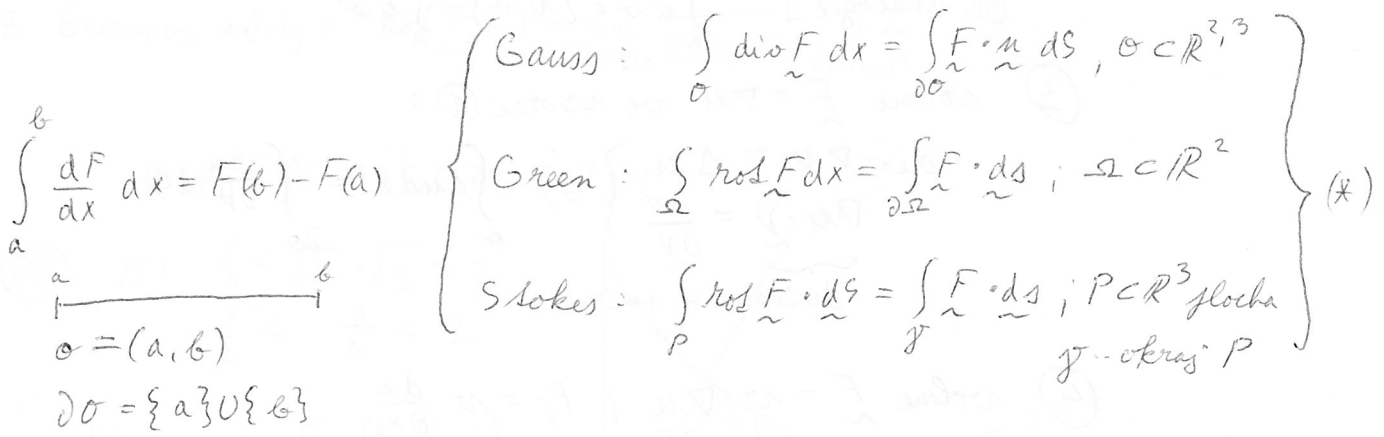 ∫_a^b dF/dx dx = F(b) − F(a)
a b
σ = (a, b)
∂σ = {a} ∪ {b}
Gauss : ∫_σ div F dx = ∫_∂σ F · n dS , σ ⊂ R^2,3
Green : ∫_Ω rot F dx = ∫_∂Ω F · ds ; Ω ⊂ R^2
Stokes : ∫_P rot F · dS = ∫_γ F · ds ; P ⊂ R^3 plocha
γ .. okraj P
(*)